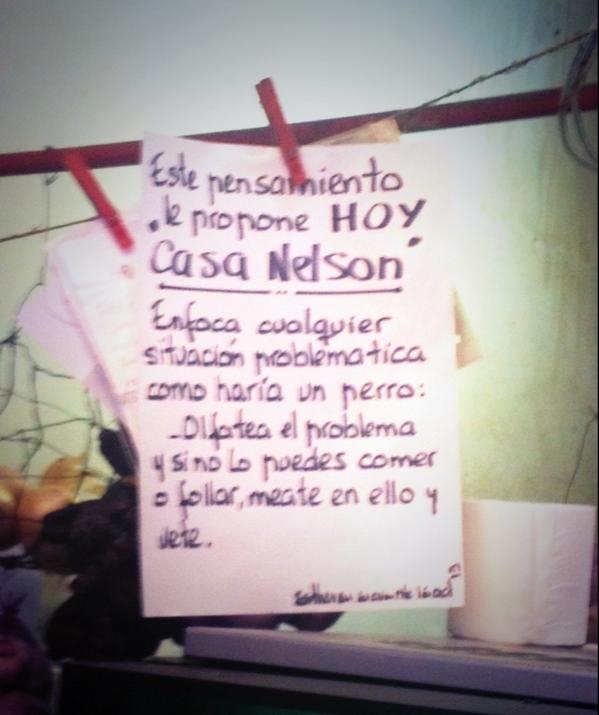 Este pensamiento
le propone HOY
Casa Nelson
Enfoca cualquier
situación problematica
como haría un perro:
_Olfatea el problema
y si no lo puedes comer
o follar, meate en ello y
vete.